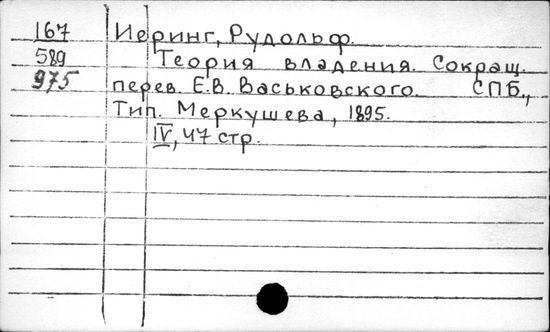 167 Иеринг, Рудольф.
589 Теория владения. Сокращ.
975 перев. Е.В. Васьковского. СПБ.,
Тип. Меркушева, 1895.
IV, 47 стр.